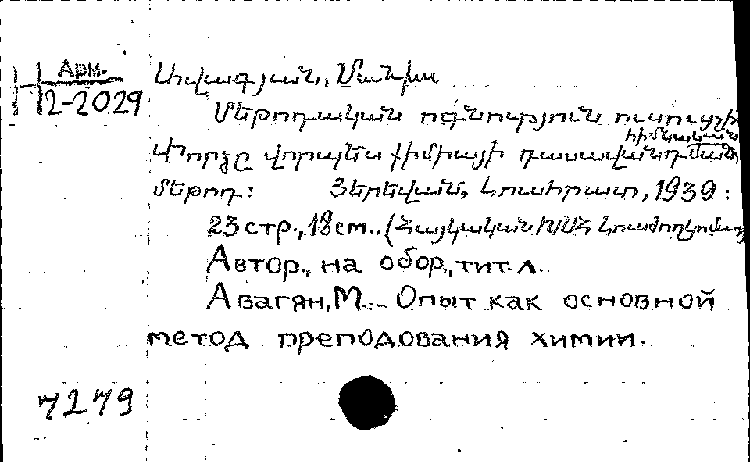 Арм.
Ավագյան, Մանյա
2-2029
Մեթոդական օգնություն ուսուցչի
հիմնական
Փորձը վորպես քիմիայի դասավանդման
մեթոդ: Յերեվան, Լուսհրատ, 1939:
23 стр., 18 см.. (Հայկական ԽՍՀ Լուսժողկոմատ
Автор., на обор, тит л.
Авагян, М. - Опыт как основной
метод преподования химии.
7279